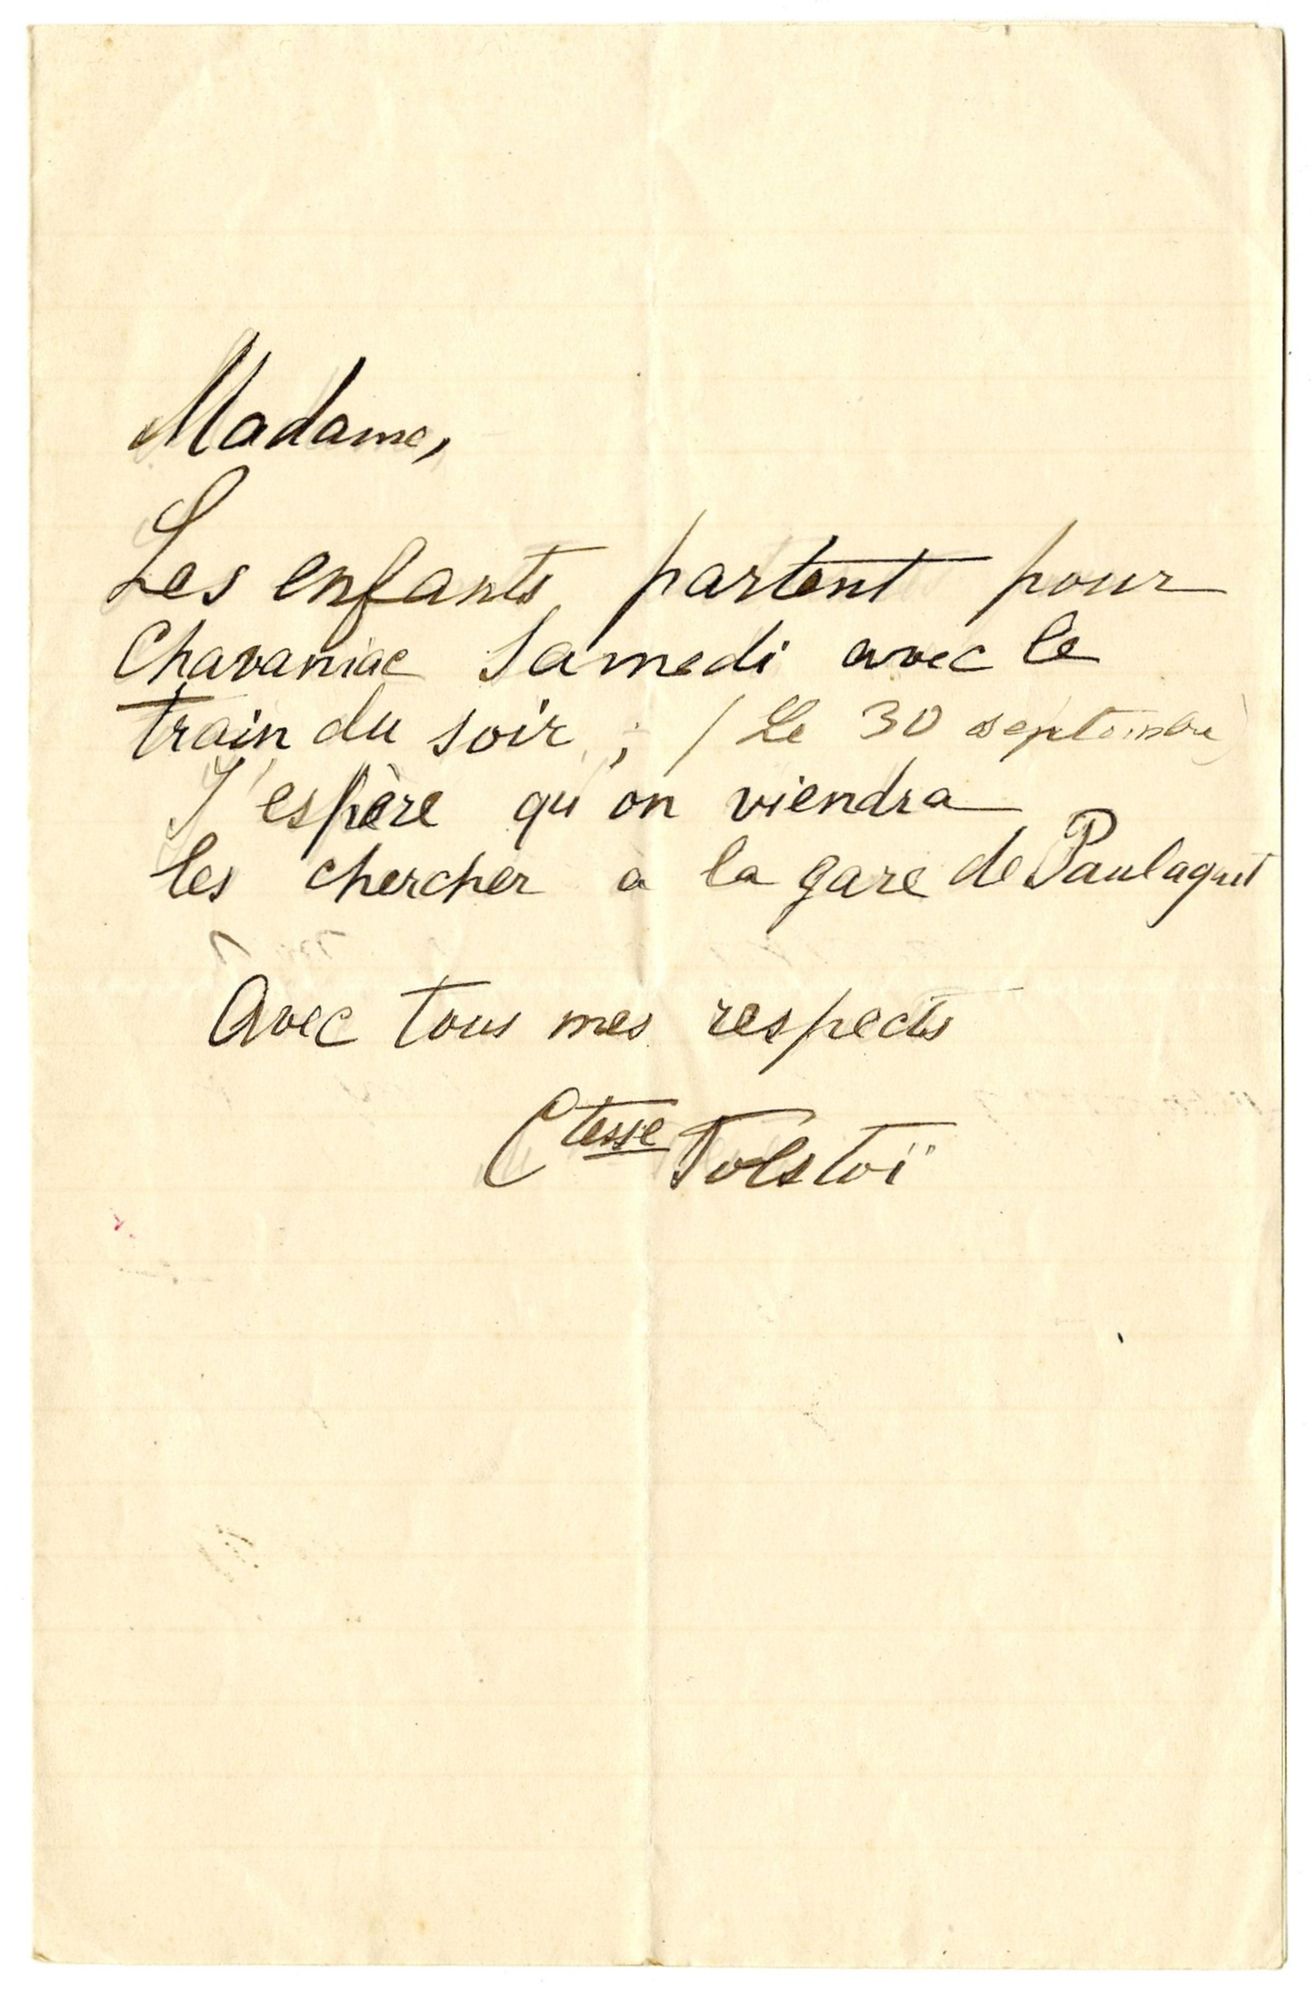 Madame,
Les enfants partent pour
Chavaniac Samedi avec le
train du soir ; (Le 30 septembre)
J'espère qu'on viendra
les chercher à la gare de Paulaguet
Avec tous mes respects
Ctesse Tolstoï